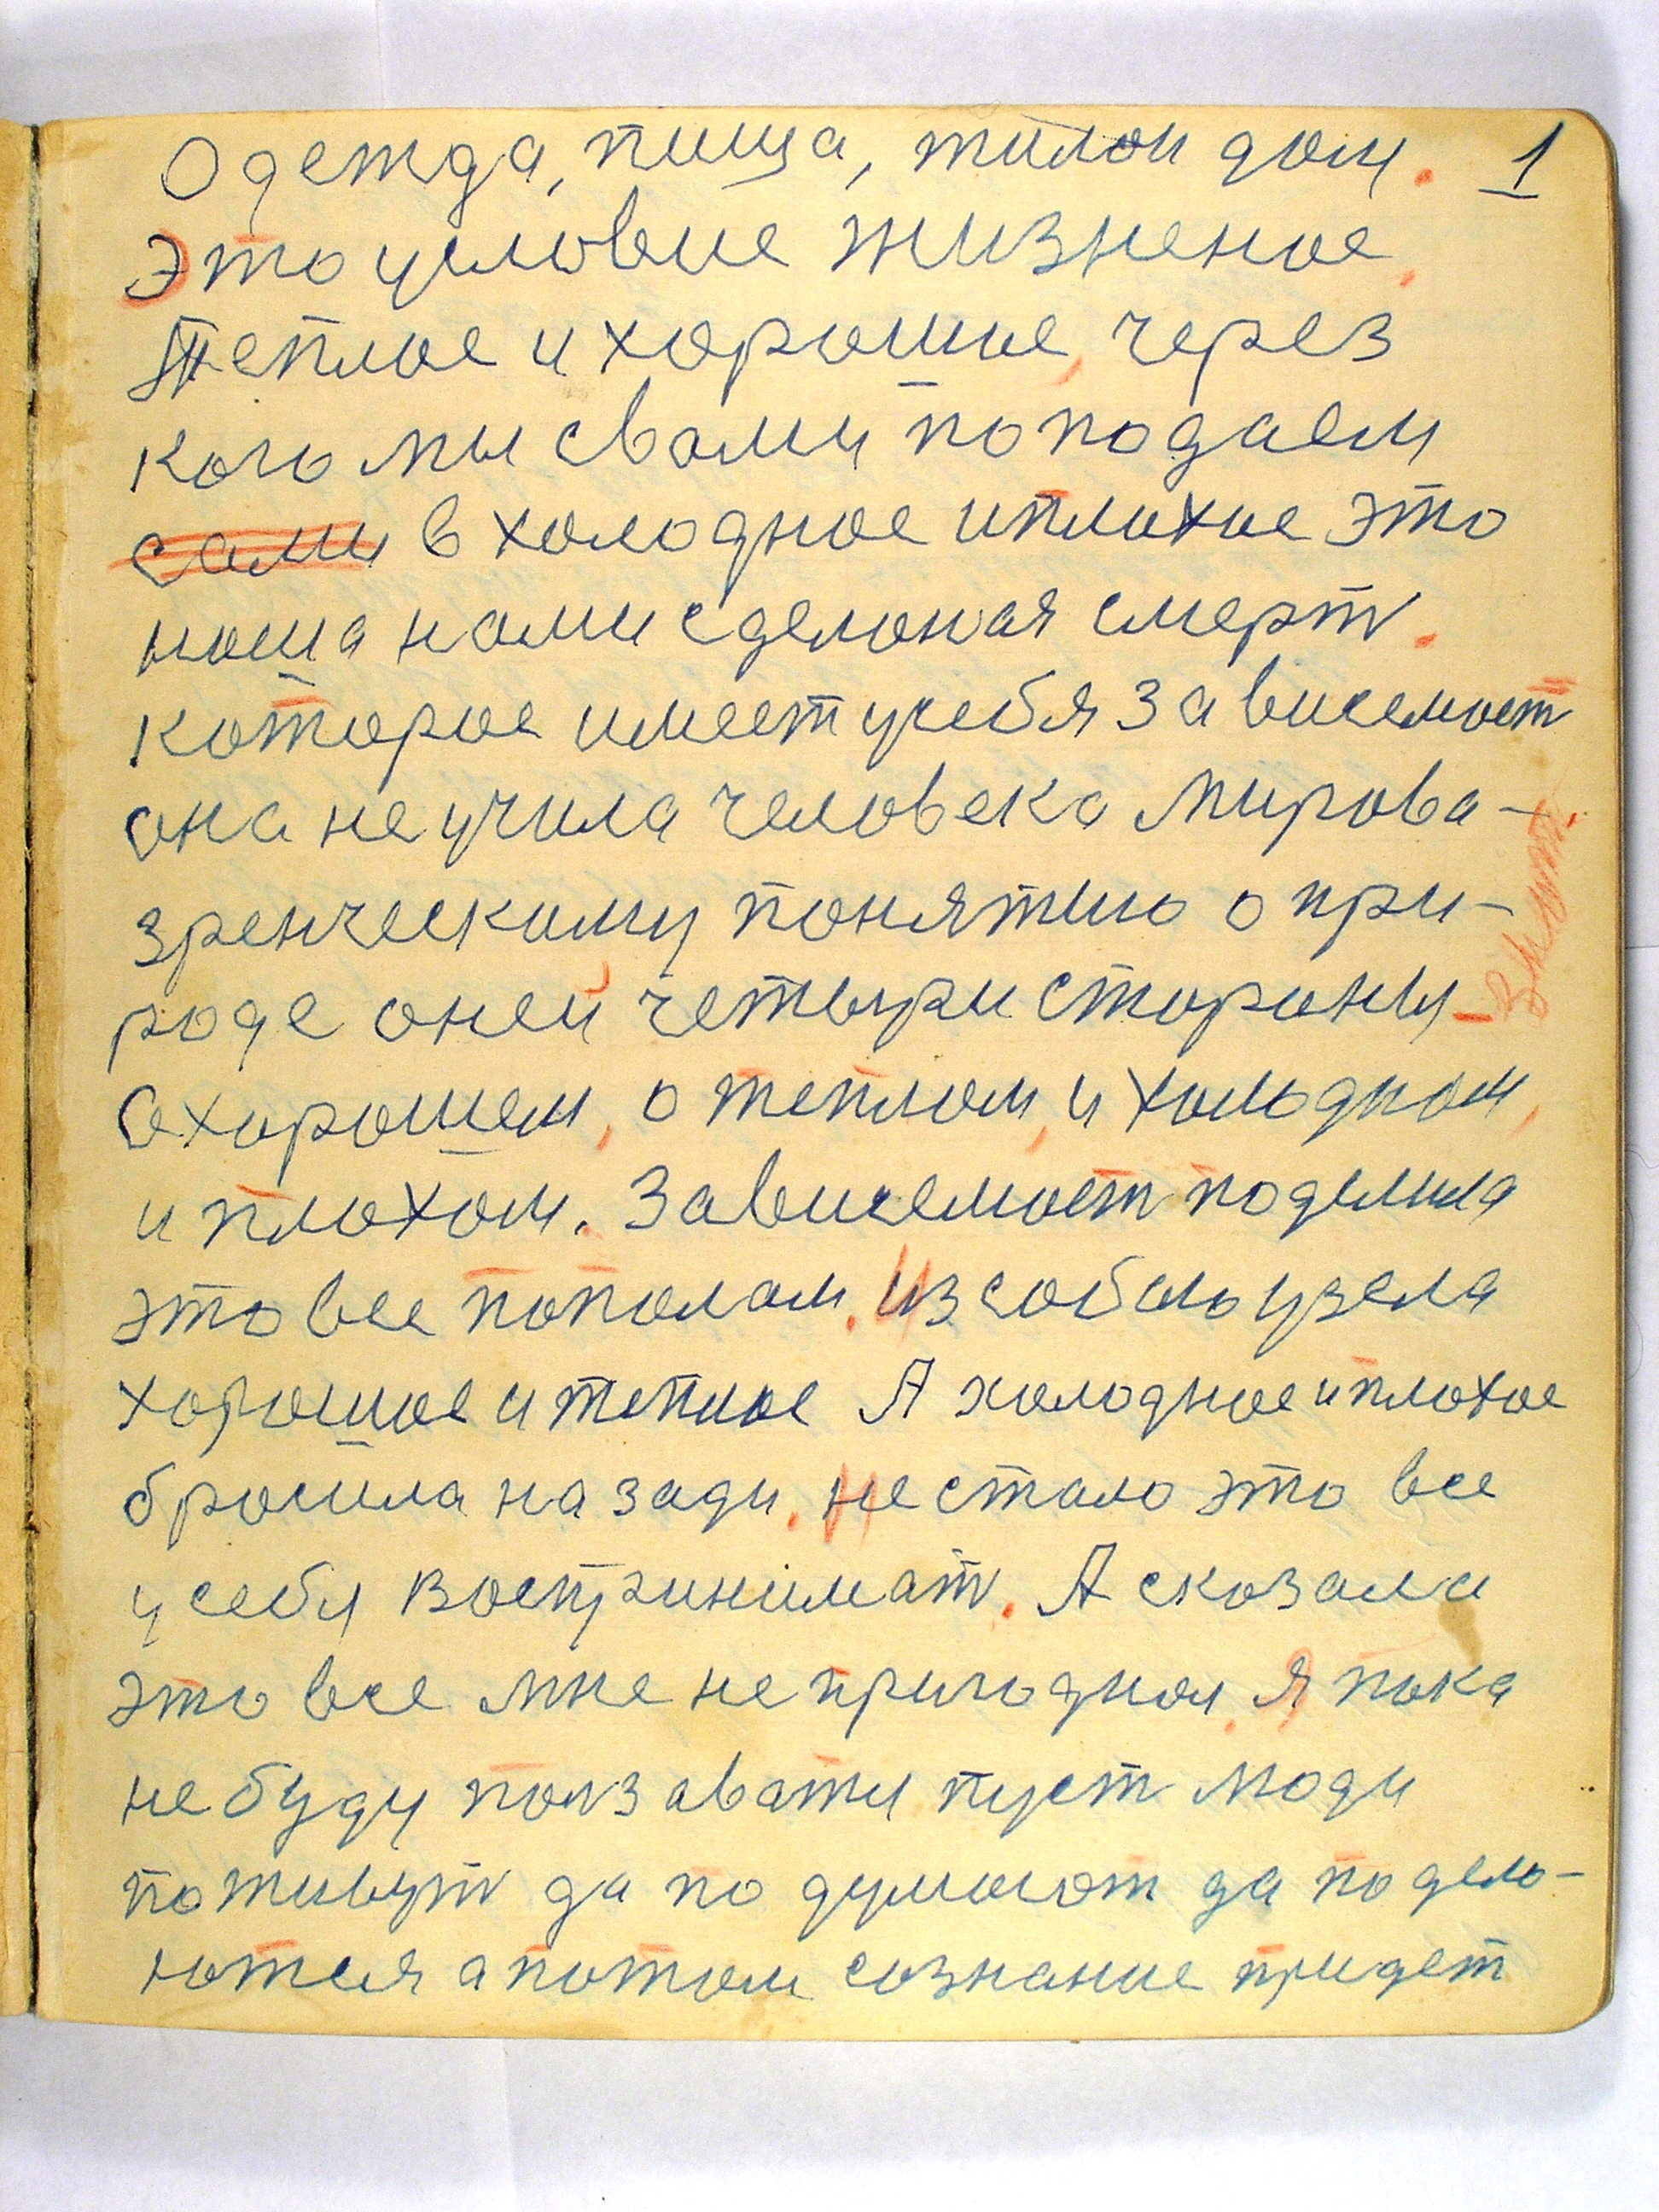 Одежда, пища, жилой дом. 1
Это условие жизненое,
Теплое и хорошие, через
кого мы свами поподаем
сами в холодное иплохое это
наша нами сделоная смерт.
которое имеет усебя зависемост
она не учила человека мирова-
зренческому понятию о при-
роде оней четыри стороны-
Охорошем, о теплом, и холодном,
и плохом. Зависемост поделила
это все пополам. Из собою узела
хорошое и теплое А холодное иплохое
бросила на зади. не стало это все
у себя воспринимат. А сказала
это все мне не пригодном. я пока
не буду ползавати пуст люди
поживут да по думоют да по дело-
ются а потом сознание придет